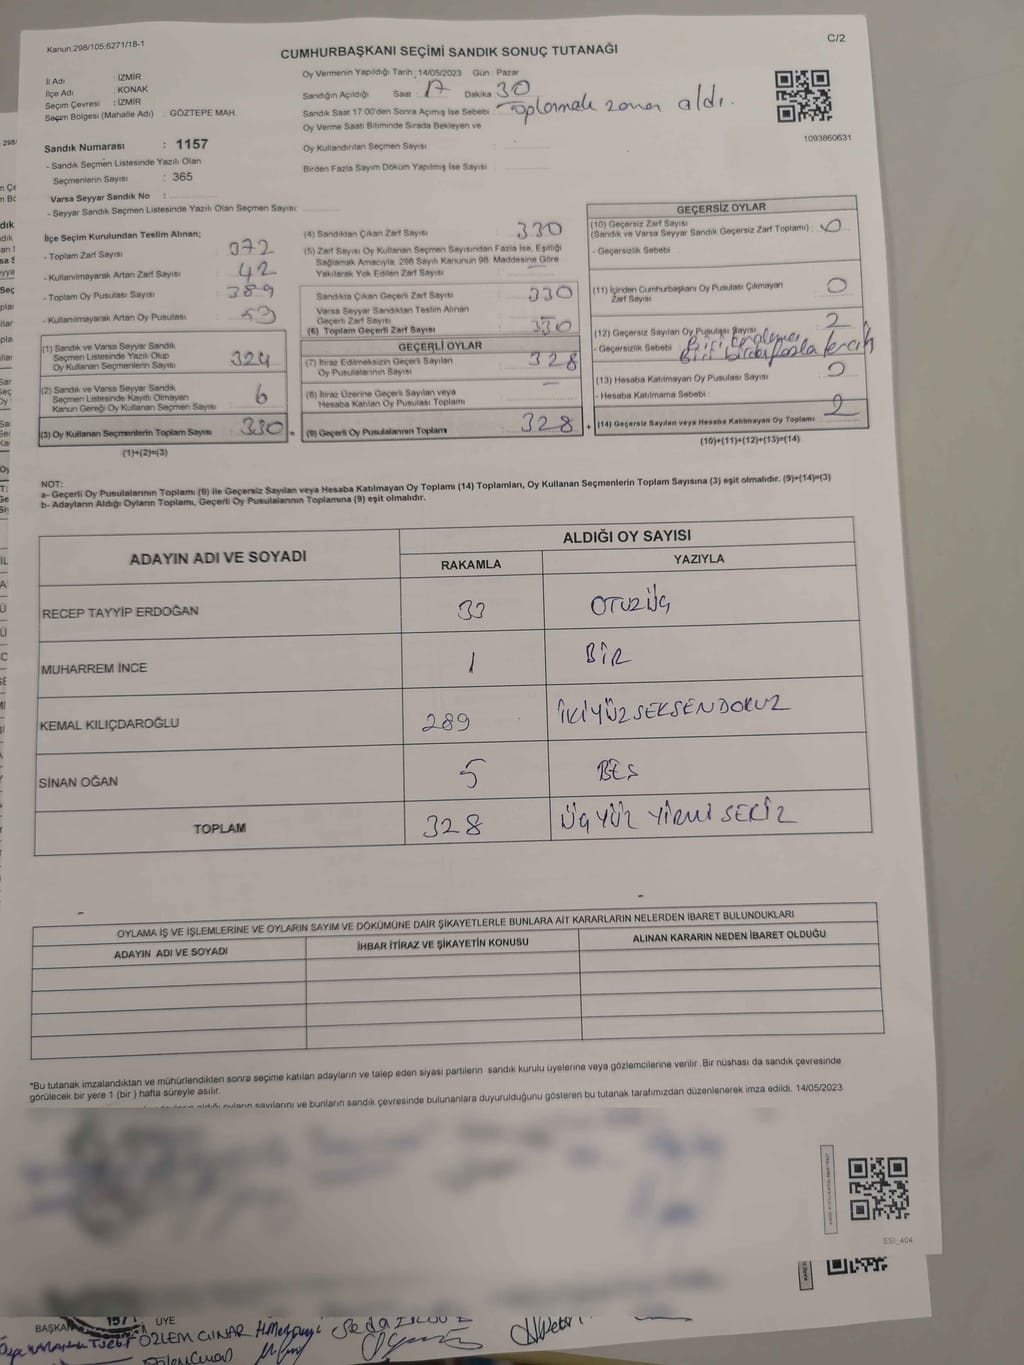 Kanun:298/105;6271/18-1
C/2
CUMHURBAŞKANI SEÇİMİ SANDIK SONUÇ TUTANAĞI
İl Adı : İZMİR
İlçe Adı : KONAK
Seçim Çevresi : İZMİR
Seçim Bölgesi (Mahalle Adı) : GÖZTEPE MAH
Sandık Numarası : 1157
- Sandık Seçmen Listesinde Yazılı Olan
Seçmenlerin Sayısı : 365
Varsa Seyyar Sandık No :
- Seyyar Sandık Seçmen Listesinde Yazılı Olan Seçmen Sayısı:
Oy Vermenin Yapıldığı Tarih : 14/05/2023 Gün : Pazar
Sandığın Açıldığı Saat : 17 Dakika 30
Sandık Saat 17:00'den Sonra Açımış İse Sebebi : Toplamak zaman aldı.
Oy Verme Saati Bitiminde Sırada Bekleyen ve
Oy Kullandırılan Seçmen Sayısı :
Birden Fazla Sayım Döküm Yapılmış İse Sayısı :
1093860631
İlçe Seçim Kurulundan Teslim Alınan;
- Toplam Zarf Sayısı : 372
- Kullanılmayarak Artan Zarf Sayısı : 42
- Toplam Oy Pusulası Sayısı : 389
- Kullanılmayarak Artan Oy Pusulası : 59
(1) Sandık ve Varsa Seyyar Sandık
Seçmen Listesinde Yazılı Olup
Oy Kullanan Seçmenlerin Sayısı : 324
(2) Sandık ve Varsa Seyyar Sandık
Seçmen Listesinde Kayıtlı Olmayan
Kanun Gereği Oy Kullanan Seçmen Sayısı : 6
(3) Oy Kullanan Seçmenlerin Toplam Sayısı : 330 =
(1)+(2)=(3)
(4) Sandıktan Çıkan Zarf Sayısı : 330
(5) Zarf Sayısı Oy Kullanan Seçmen Sayısından Fazla İse, Eşitliği
Sağlamak Amacıyla, 298 Sayılı Kanunun 98. Maddesine Göre
Yakılarak Yok Edilen Zarf Sayısı :
Sandıkta Çıkan Geçerli Zarf Sayısı : 330
Varsa Seyyar Sandıktan Teslim Alınan
Geçerli Zarf Sayısı :
(6) Toplam Geçerli Zarf Sayısı : 330
GEÇERLİ OYLAR
(7) İtiraz Edilmeksizin Geçerli Sayılan
Oy Pusulalarının Sayısı : 328
(8) İtiraz Üzerine Geçerli Sayılan veya
Hesaba Katılan Oy Pusulası Toplamı : —
(9) Geçerli Oy Pusulalarının Toplamı : 328 +
GEÇERSİZ OYLAR
(10) Geçersiz Zarf Sayısı
(Sandık ve Varsa Seyyar Sandık Geçersiz Zarf Toplamı) : 0
- Geçersizlik Sebebi :
(11) İçinden Cumhurbaşkanı Oy Pusulası Çıkmayan
Zarf Sayısı : 0
(12) Geçersiz Sayılan Oy Pusulası Sayısı : 2
- Geçersizlik Sebebi : Biri
Biri birden fazla tercih
(13) Hesaba Katılmayan Oy Pusulası Sayısı : 0
- Hesaba Katılmama Sebebi :
(14) Geçersiz Sayılan veya Hesaba Katılmayan Oy Toplamı : 2
(10)+(11)+(12)+(13)=(14)
NOT:
a- Geçerli Oy Pusulalarının Toplamı (9) ile Geçersiz Sayılan veya Hesaba Katılmayan Oy Toplamı (14) Toplamları, Oy Kullanan Seçmenlerin Toplam Sayısına (3) eşit olmalıdır. (9)+(14)=(3)
b- Adayların Aldığı Oyların Toplamı, Geçerli Oy Pusulalarının Toplamına (9) eşit olmalıdır.
ADAYIN ADI VE SOYADI
ALDIĞI OY SAYISI
RAKAMLA YAZIYLA
RECEP TAYYİP ERDOĞAN 33 OTUZÜÇ
MUHARREM İNCE 1 BİR
KEMAL KILIÇDAROĞLU 289 İKİYÜZSEKSENDOKUZ
SİNAN OĞAN 5 BEŞ
TOPLAM 328 ÜÇ YÜZ YİRMİ SEKİZ
OYLAMA İŞ VE İŞLEMLERİNE VE OYLARIN SAYIM VE DÖKÜMÜNE DAİR ŞİKAYETLERLE BUNLARA AİT KARARLARIN NELERDEN İBARET BULUNDUKLARI
ADAYIN ADI VE SOYADI İHBAR İTİRAZ VE ŞİKAYETİN KONUSU ALINAN KARARIN NEDEN İBARET OLDUĞU
*Bu tutanak imzalandıktan ve mühürlendikten sonra seçime katılan adayların ve talep eden siyasi partilerin sandık kurulu üyelerine veya gözlemcilerine verilir. Bir nüshası da sandık çevresinde
görülecek bir yere 1 (bir) hafta süreyle asılır.
oyların sayılarını ve bunların sandık çevresinde bulunanlara duyurulduğunu gösteren bu tutanak tarafımızdan düzenlenerek imza edildi. 14/05/2023
SSI_404
BAŞKAN ÜYE
ÖZLEM ÇINAR